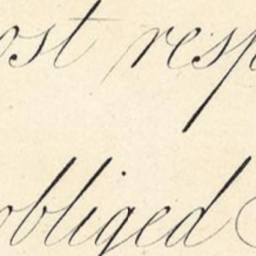 ost resp
obliged